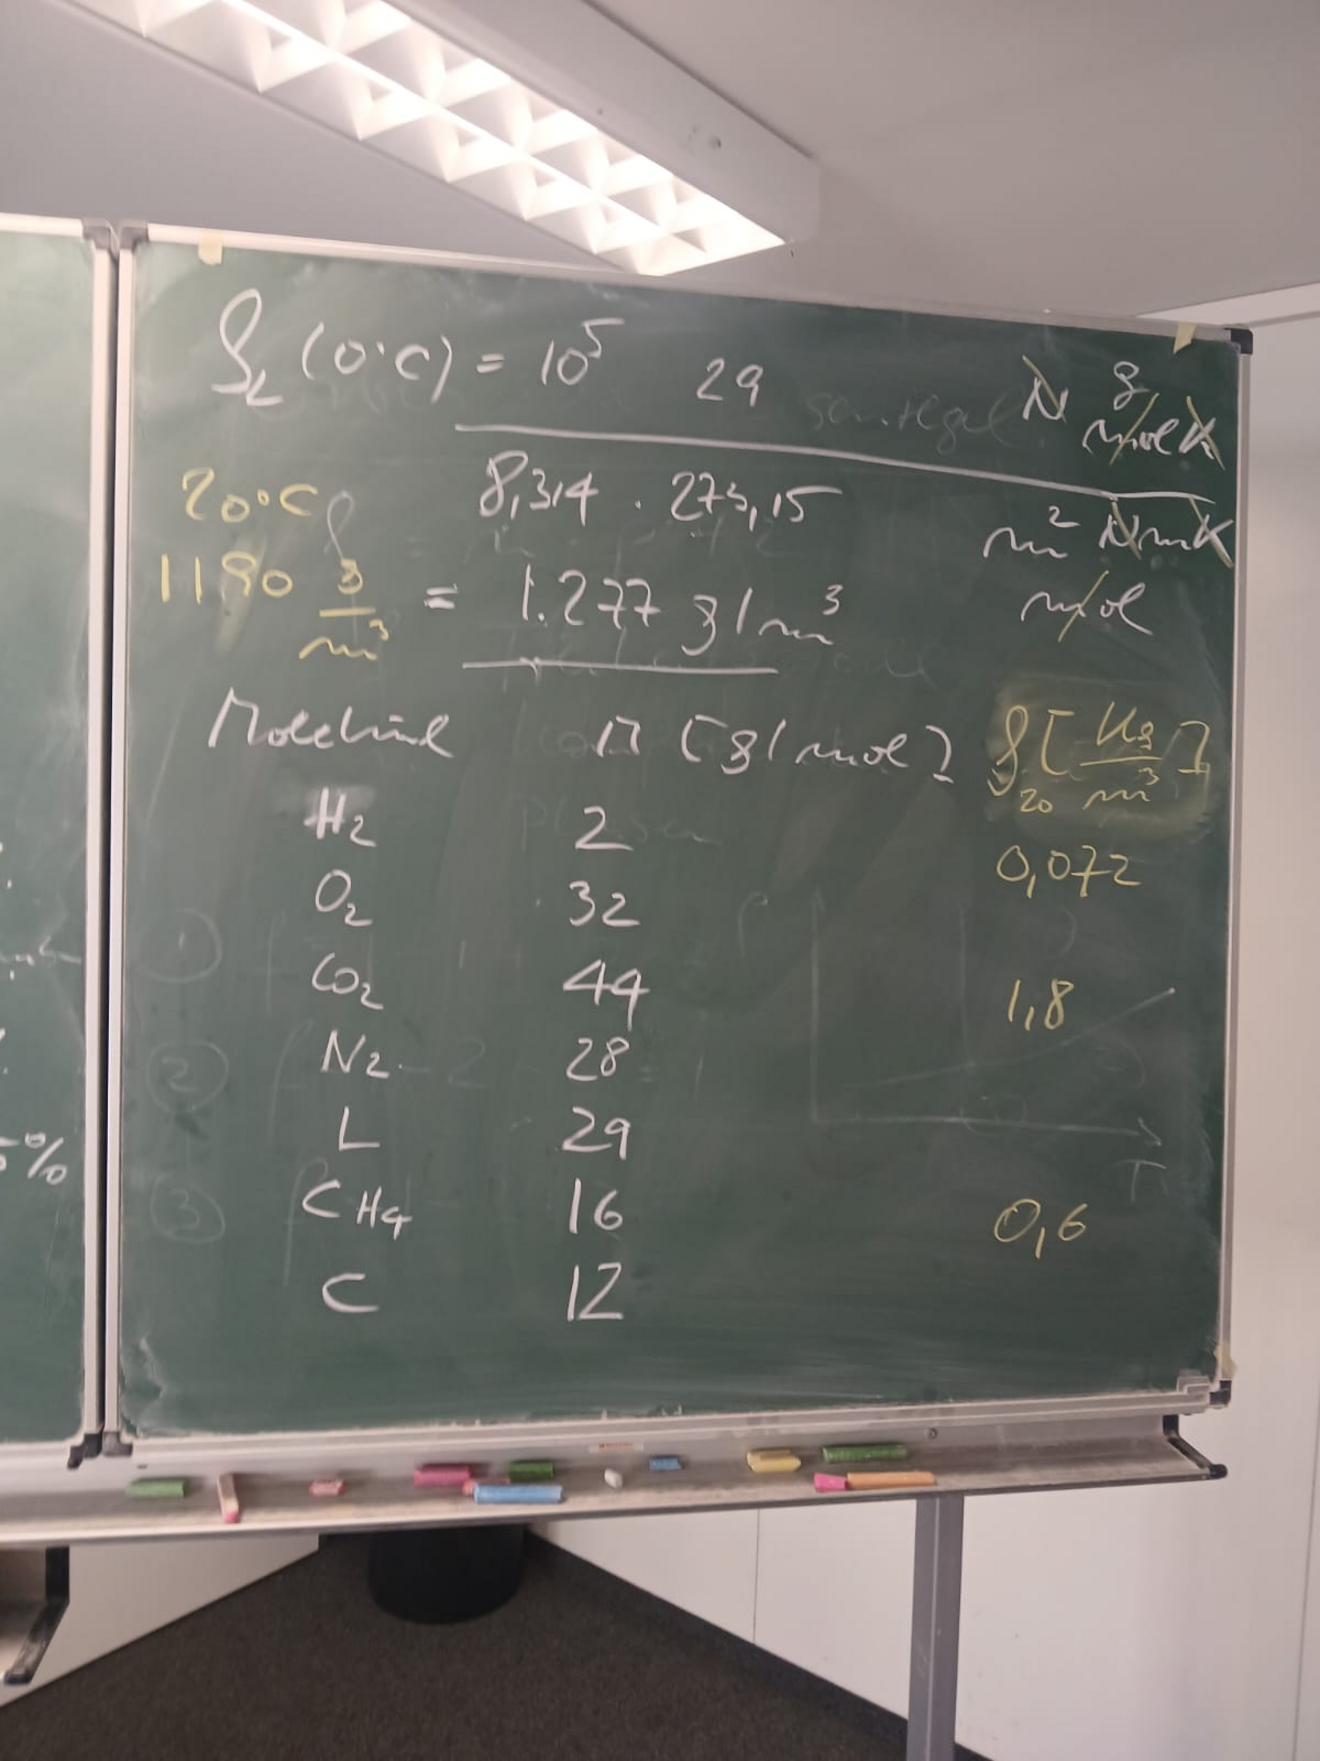 ρL (0°C) = 10⁵ 29 N g / mol K
8,314 · 273,15 m² N m K / mol
20°C
1190 g/m³ = 1.277 g/m³
Molekül M [g/mol] ρ20 [Kg/m³]
H₂ 2 0,072
O₂ 32
CO₂ 44 1,8
N₂ 28
L 29
CH₄ 16 0,6
C 12
5%